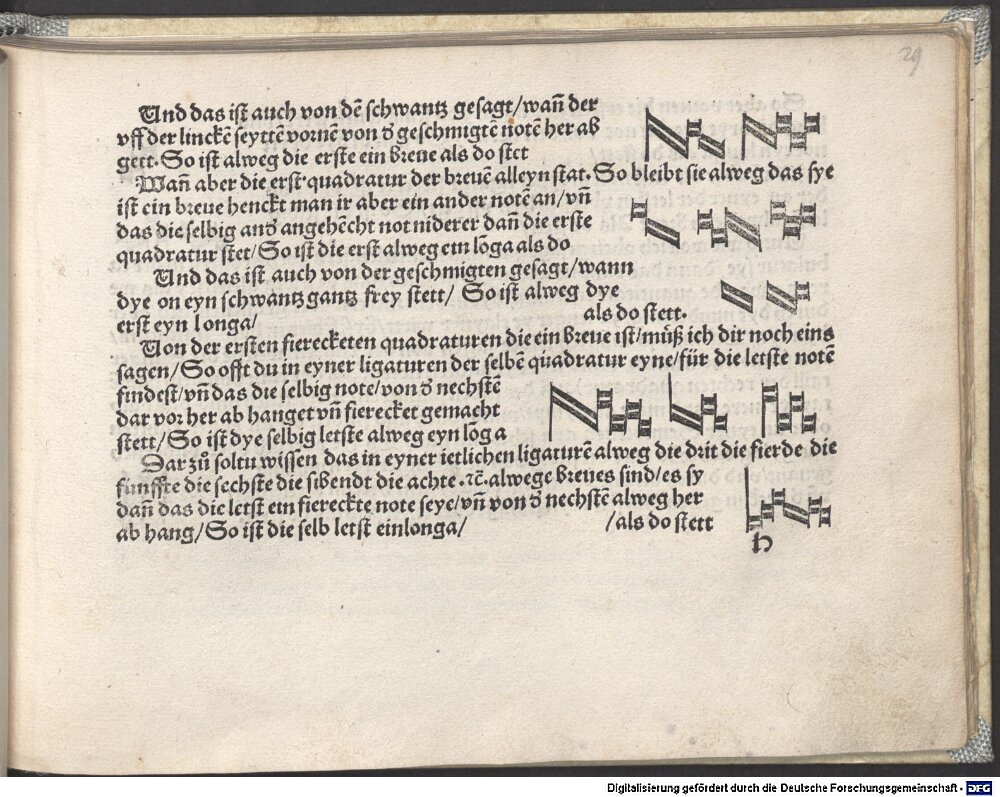 29
Und das ist auch von dē schwantz gesagt/wañ der
vff der linckē seyttē vornē von d̕ geschmigtē notē her ab
gett. So ist alweg die erste ein breue als do stet
Wañ aber die erst quadratur der breuē alleyn stat. So bleibt sie alweg das sye
ist ein breue henckt man ir aber ein ander notē an/vñ
das die selbig and̕s angehēcht not niderer dañ die erste
quadratur stet/So ist die erst alweg ein lōga als do
Und das ist auch von der geschmigten gesagt/wann
dye on eyn schwantz gantz frey stett/ So ist alweg dye
erst eyn longa/ als do stett.
Von der ersten fierecketen quadraturen die ein breue ist/můß ich dir noch eins
sagen/So offt du in eyner ligaturen der selbē quadratur eyne/für die letste notē
findest/vñ das die selbig note/von d̕ nechstē
dar vor her ab hanget vñ fierecket gemacht
stett/So ist dye selbig letste alweg eyn lōga
Dar zů soltu wissen das in eyner ietlichen ligaturē alweg die drit die fierde die
fünffte die sechste die sibendt die achte .⁊c̄. alwege breues sind/es sy
dañ das die letst ein fiereckte note seye/vñ von d̕ nechstē alweg her
ab hang/So ist die selb letst einlonga/ /als do stett
Digitalisierung gefördert durch die Deutsche Forschungsgemeinschaft - DFG